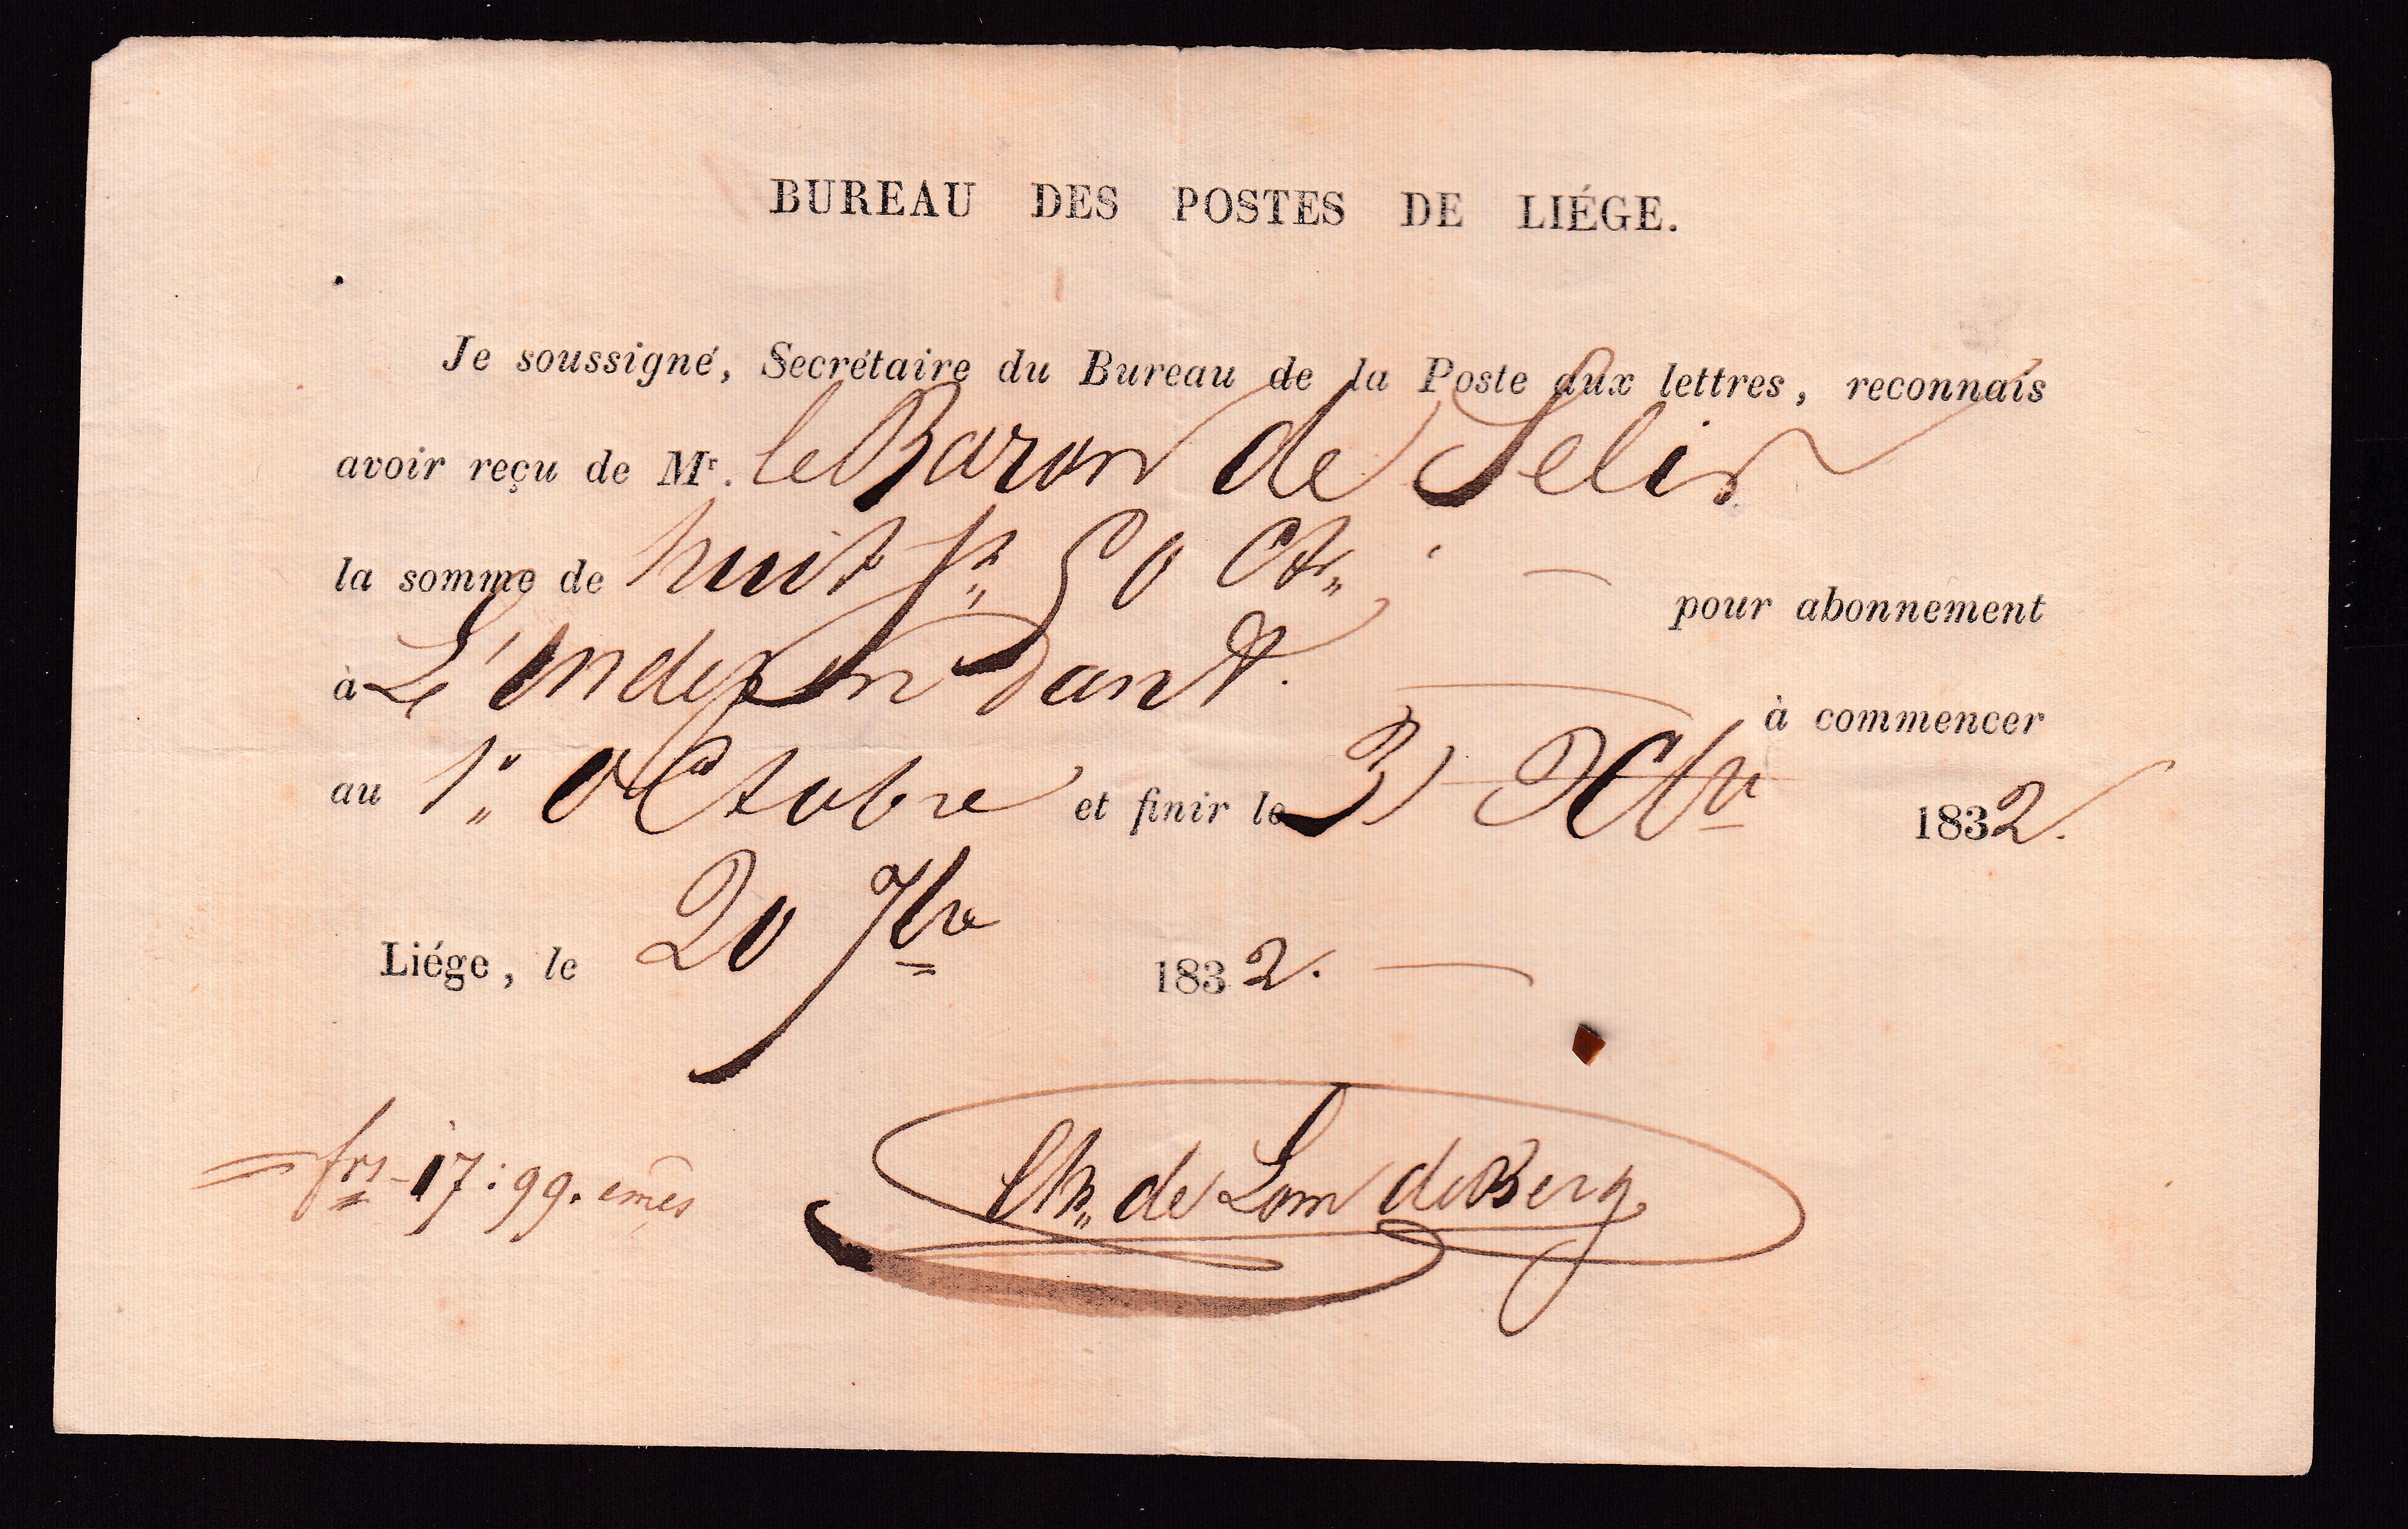 BUREAU DES POSTES DE LIÉGE.
Je soussigné, Secrétaire du Bureau de la Poste aux lettres, reconnais
avoir reçu de Mr. le Baron de Selis
la somme de huit frs 50 Cts pour abonnement
à L'indépendant. à commencer
au 1er Octobre et finir le 31 Xbre 1832.
Liége, le 20 7bre 1832.
frs 17:99. cmes
Ch. de Lom de Berg